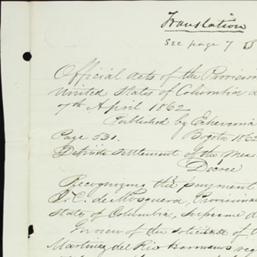 Translation
See page 7
Official acts of the Provision
United States of Columbia
7th April 1862
Published by Echeverria
Page 531.
Definite Settlement of the
Decree
Recognizing the payment
T. C. de Mosquera, Provisional
State of Columbia, Supreme
In view of the solicitude of
Martinez del Rio